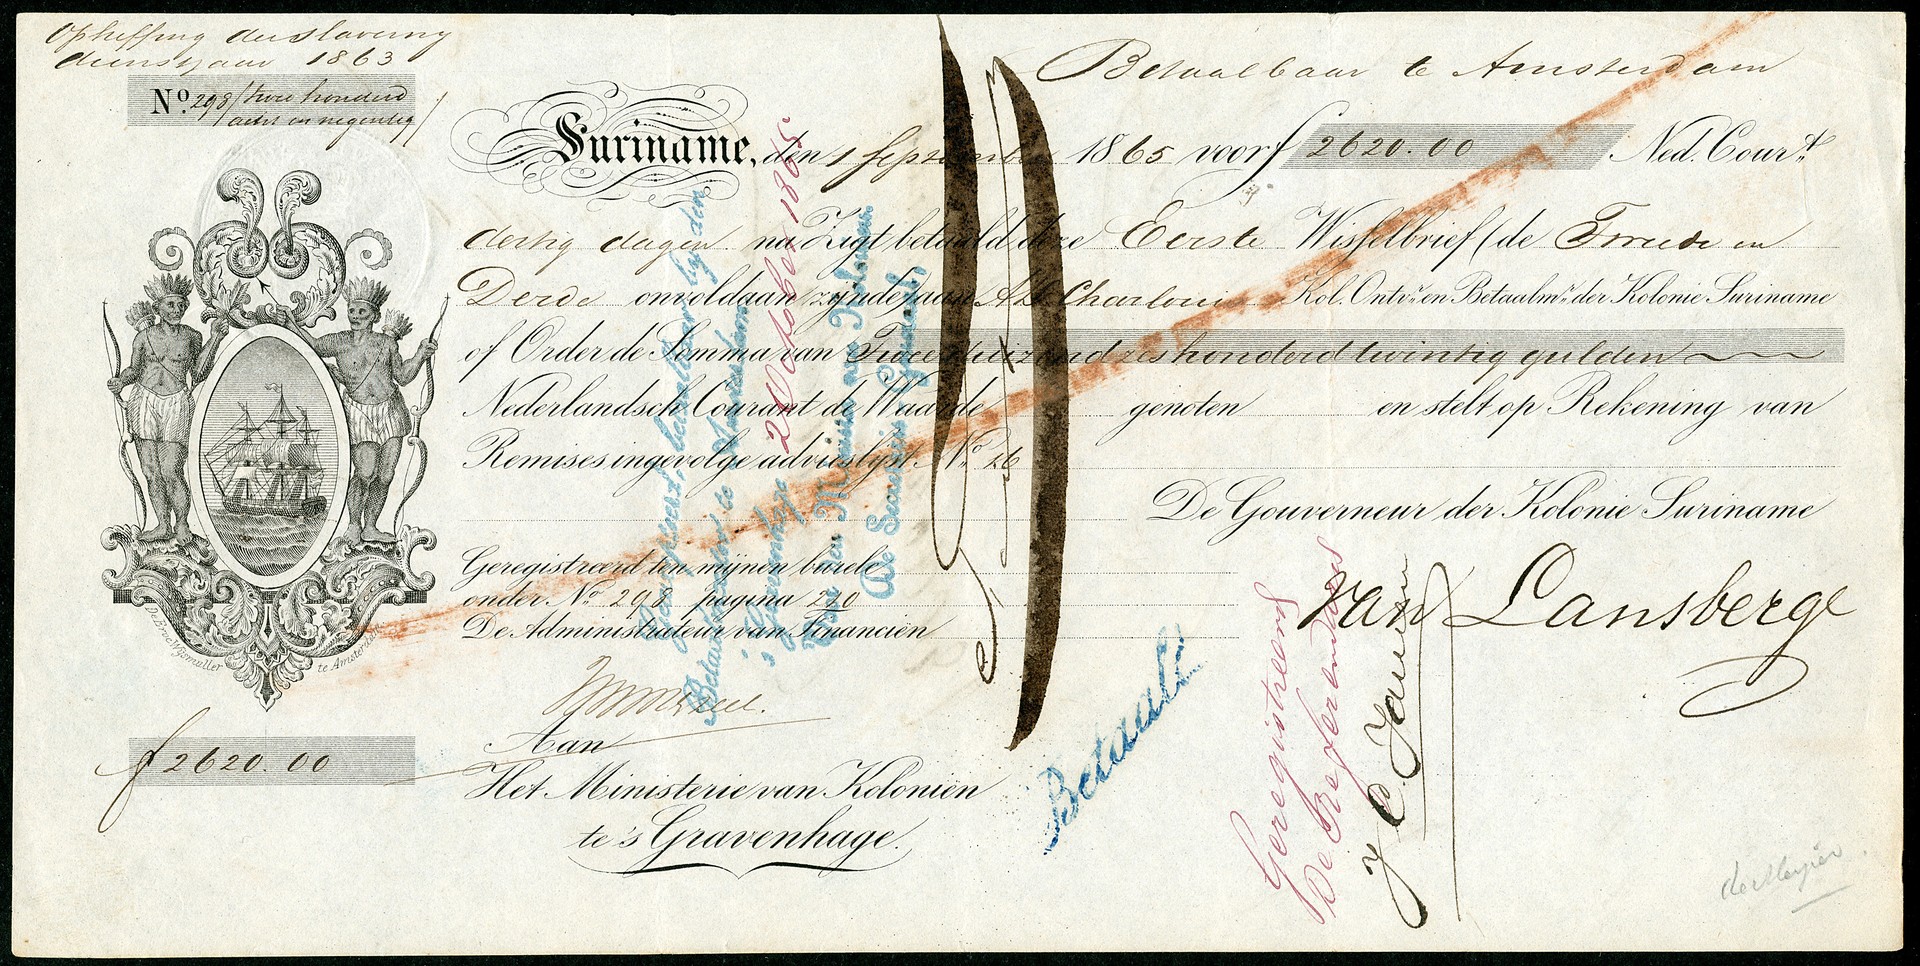 Opheffing der slaverny
dienstjaar 1863
No. 298 / twee honderd
acht en negentig /
Betaalbaar te Amsterdam
Suriname, den 1 September 1865 voor f 2620.00 Ned. Court.
dertig dagen na Zigt betaald deze Eerste Wisselbrief (de Tweede en
Derde onvoldaan zijnde) aan Charlouis Kol. Ontvr. en Betaalmr. der Kolonie Suriname
of Order de Somma van Twee duizend zes honderd twintig gulden
Nederlandsch Courant de Waarde genoten en stelt op Rekening van
Remises ingevolge advieslijst No. 26
De Gouverneur der Kolonie Suriname
van Lansberge
Geregistreerd ten mijnen burele
onder No. 298 pagina 290
De Administrateur van Financiën
Aan
Het Ministerie van Koloniën
te 's Gravenhage.
De Erve Wijsmuller te Amsterdam
f 2620.00
Geaccepteerd, betaalbaar bij den
Betaalmeester te Amsterdam
's Gravenhage 2 October 1865
Den Minister van Kolonien
De Secretaris Generaal,
Betaald
Geregistreerd
De Referendaris